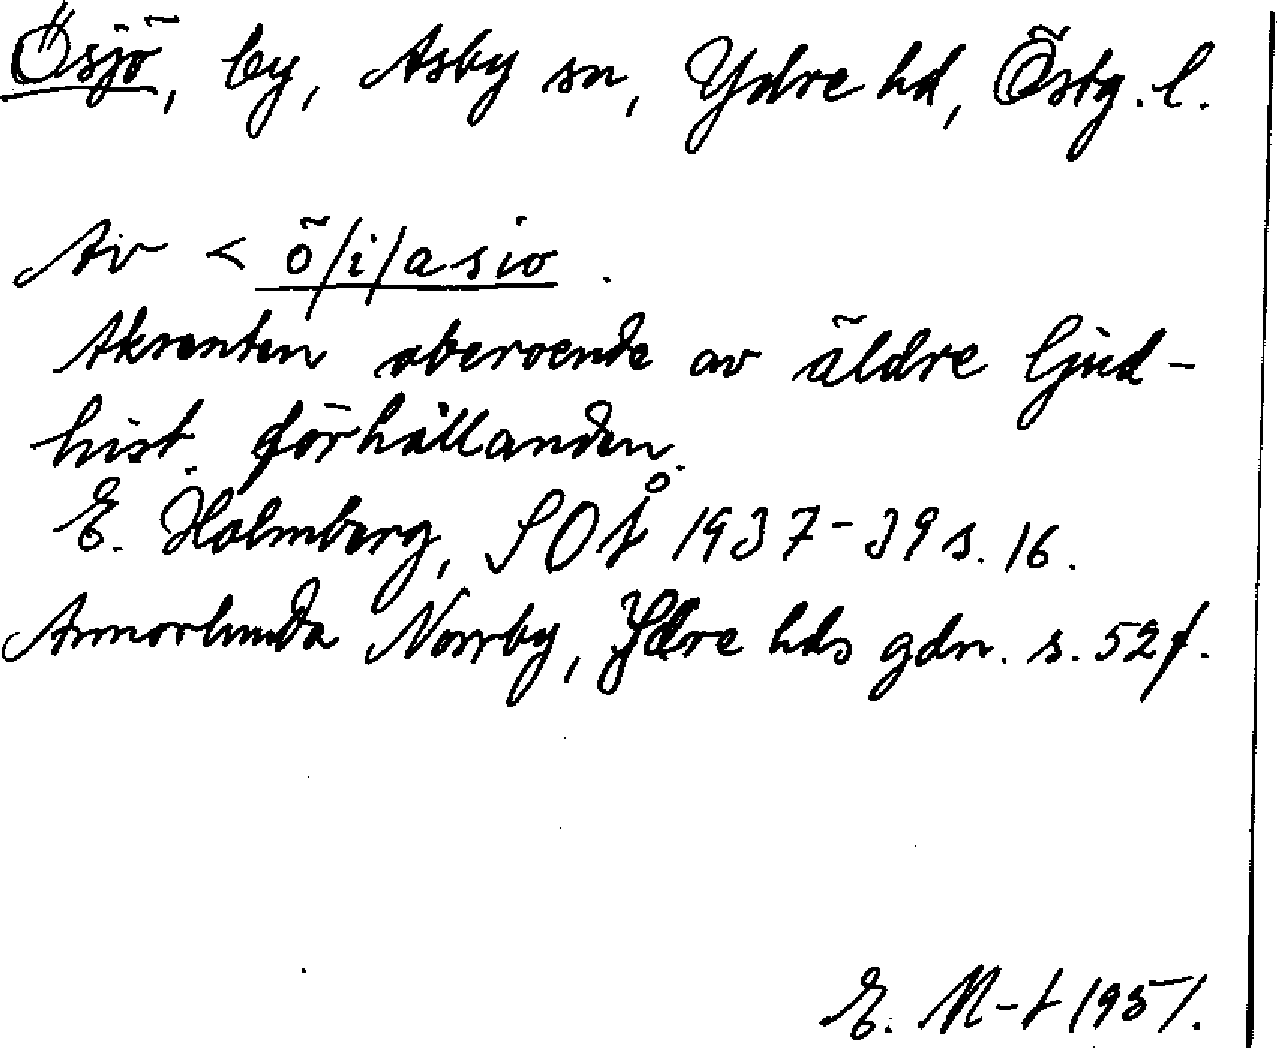 Ösjö, by, Asby sn, Ydre hd, Östg. l.
Av < ö/i/a sio.
Akcenten oberoende av äldre ljud-
hist. förhållanden.
E. Holmberg, SOÅ 1937-39 s. 16.
Annorlunda Norrby, Ydre hds gdn. s. 52 f.
E. M-t 1951.